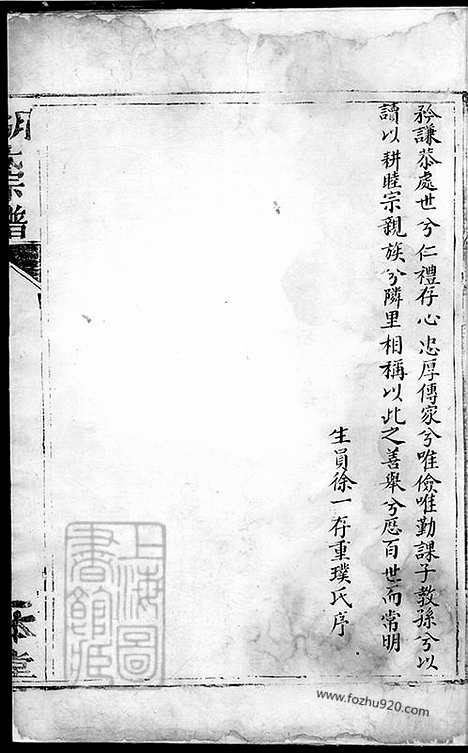 矜謙恭處世兮仁禮存心忠厚傳家兮唯儉唯勤課子教孫兮以
讀以耕睦宗親族兮隣里相稱以此之善舉兮歷百世而常明
生員徐一存重璞氏序
胡氏宗譜
本堂
上海圖書館藏
www.fozhu920.com